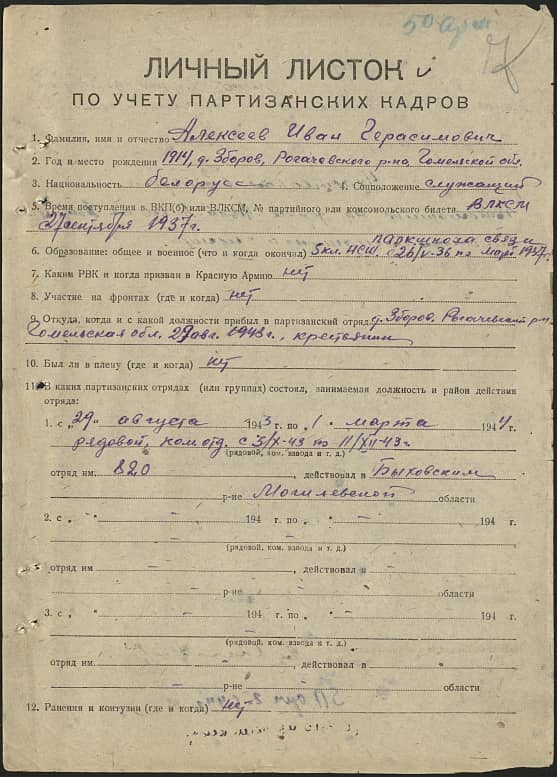 50 арт
ЛИЧНЫЙ ЛИСТОК
ПО УЧЕТУ ПАРТИЗАНСКИХ КАДРОВ
1. Фамилия, имя и отчество Алексеев Иван Герасимович
2. Год и место рождения 1914, д. Зборов, Рогачевского р-на, Гомельской обл.
3. Национальность белорусс 4. Соцположение служащий
5. Время поступления в ВКП(б) или ВЛКСМ, № партийного или комсомольского билета ВЛКСМ
27 сентября 1937 г.
6. Образование: общее и военное (что и когда окончил) 5 кл. НСШ, связи
с 26/V-36 по март 1937 г.
7. Каким РВК и когда призван в Красную Армию нет
8. Участие на фронтах (где и когда) нет
9. Откуда, когда и с какой должности прибыл в партизанский отряд д. Зборов, Рогачевский р-н,
Гомельская обл. 29 авг. 1943 г., крестьянин
10. Был ли в плену (где и когда) нет
11. В каких партизанских отрядах (или группах) состоял, занимаемая должность и район действия
отряда:
1. с „29" августа 1943 г. по „1" марта 1944 г.
рядовой, ком. отд. с 3/X-43 по 11/XII-43 г.
(рядовой, ком. взвода и т. д.)
отряд им. 820, действовал в Быховским
р-не Могилевской области
2. с „ - " - 194 г. по „ - " - 194 г.
(рядовой, ком. взвода и т. д.)
отряд им. -, действовал в -
- р-не - области
3. с „ - " - 194 г. по „ - " - 194 г.
-
(рядовой, ком. взвода и т. д.)
отряд им. -, действовал в -
- р-не - области
12. Ранения и контузии (где и когда) нет